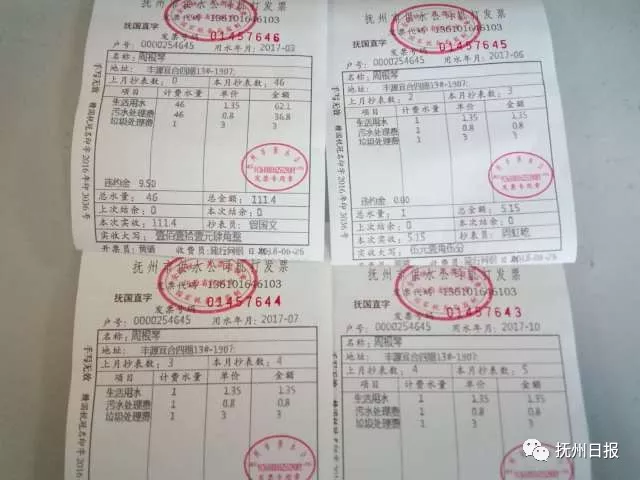 抚州市供水公司机打发票
发票代码 136101646103
抚国直字
发票号码 01457646
户号: 0000254645 用水年月: 2017-03
名称: 周根琴
地址:
上月抄表数: 0 本月抄表数: 46
项目 计费水量 单价 金额
生活用水 46 1.35 62.1
污水处理费 46 0.8 36.8
垃圾处理费 1 3 3
违约金 9.50
总水量: 46 总金额: 111.4
上次结余: 0 本次结余: 0
本次实收: 111.4 抄表员: 曾国文
实收大写: 壹佰壹拾壹元肆角整
开票员: 黄倩 收费员: 建行网银
手写无效
发票专用章
抚州市供水公司机打发票
发票代码 136101646103
抚国直字
发票号码 01457645
户号: 0000254645 用水年月: 2017-06
名称: 周根琴
地址:
上月抄表数: 2 本月抄表数: 3
项目 计费水量 单价 金额
生活用水 1 1.35 1.35
污水处理费 1 0.8 0.8
垃圾处理费 1 3 3
违约金 0.00
总水量: 1 总金额: 5.15
上次结余: 0 本次结余: 0
本次实收: 5.15 抄表员:
实收大写: 伍元壹角伍分
开票员: 收费员: 建行网银
手写无效
发票专用章
抚州市供水公司机打发票
发票代码 136101646103
抚国直字
发票号码 01457644
户号: 0000254645 用水年月: 2017-07
名称: 周根琴
地址:
上月抄表数: 3 本月抄表数: 4
项目 计费水量 单价 金额
生活用水 1 1.35 1.35
污水处理费 1 0.8 0.8
垃圾处理费 1 3 3
手写无效
抚州市供水公司机打发票
发票代码 136101646103
抚国直字
发票号码 01457643
户号: 0000254645 用水年月: 2017-10
名称: 周根琴
地址:
上月抄表数: 4 本月抄表数: 5
项目 计费水量 单价 金额
生活用水 1 1.35 1.35
污水处理费 1 0.8 0.8
垃圾处理费 1 3 3
抚州日报